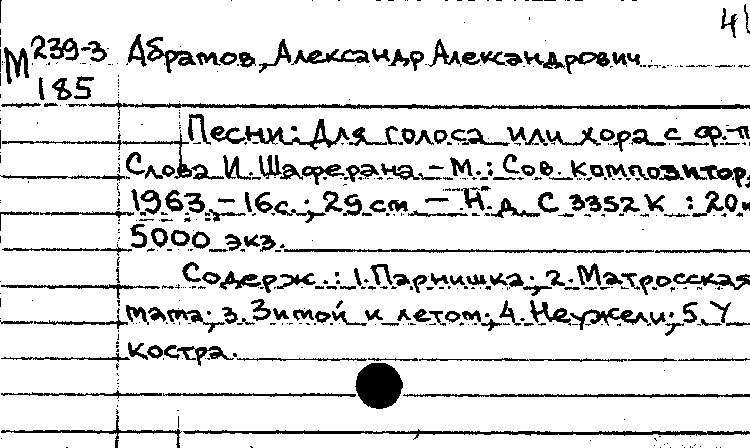 41
М 239-3 Абрамов, Александр Александрович
185
Песни: Для голоса или хора с ф.-п
Слова И. Шаферана. – М.: Сов. композитор,
1963. – 16с.; 29 cm. – Н.д. С 3352 К : 20к
5000 экз.
Содерж.: 1. Парнишка; 2. Матросская
тата; 3. Зимой и летом; 4. Неужели; 5. У
костра.